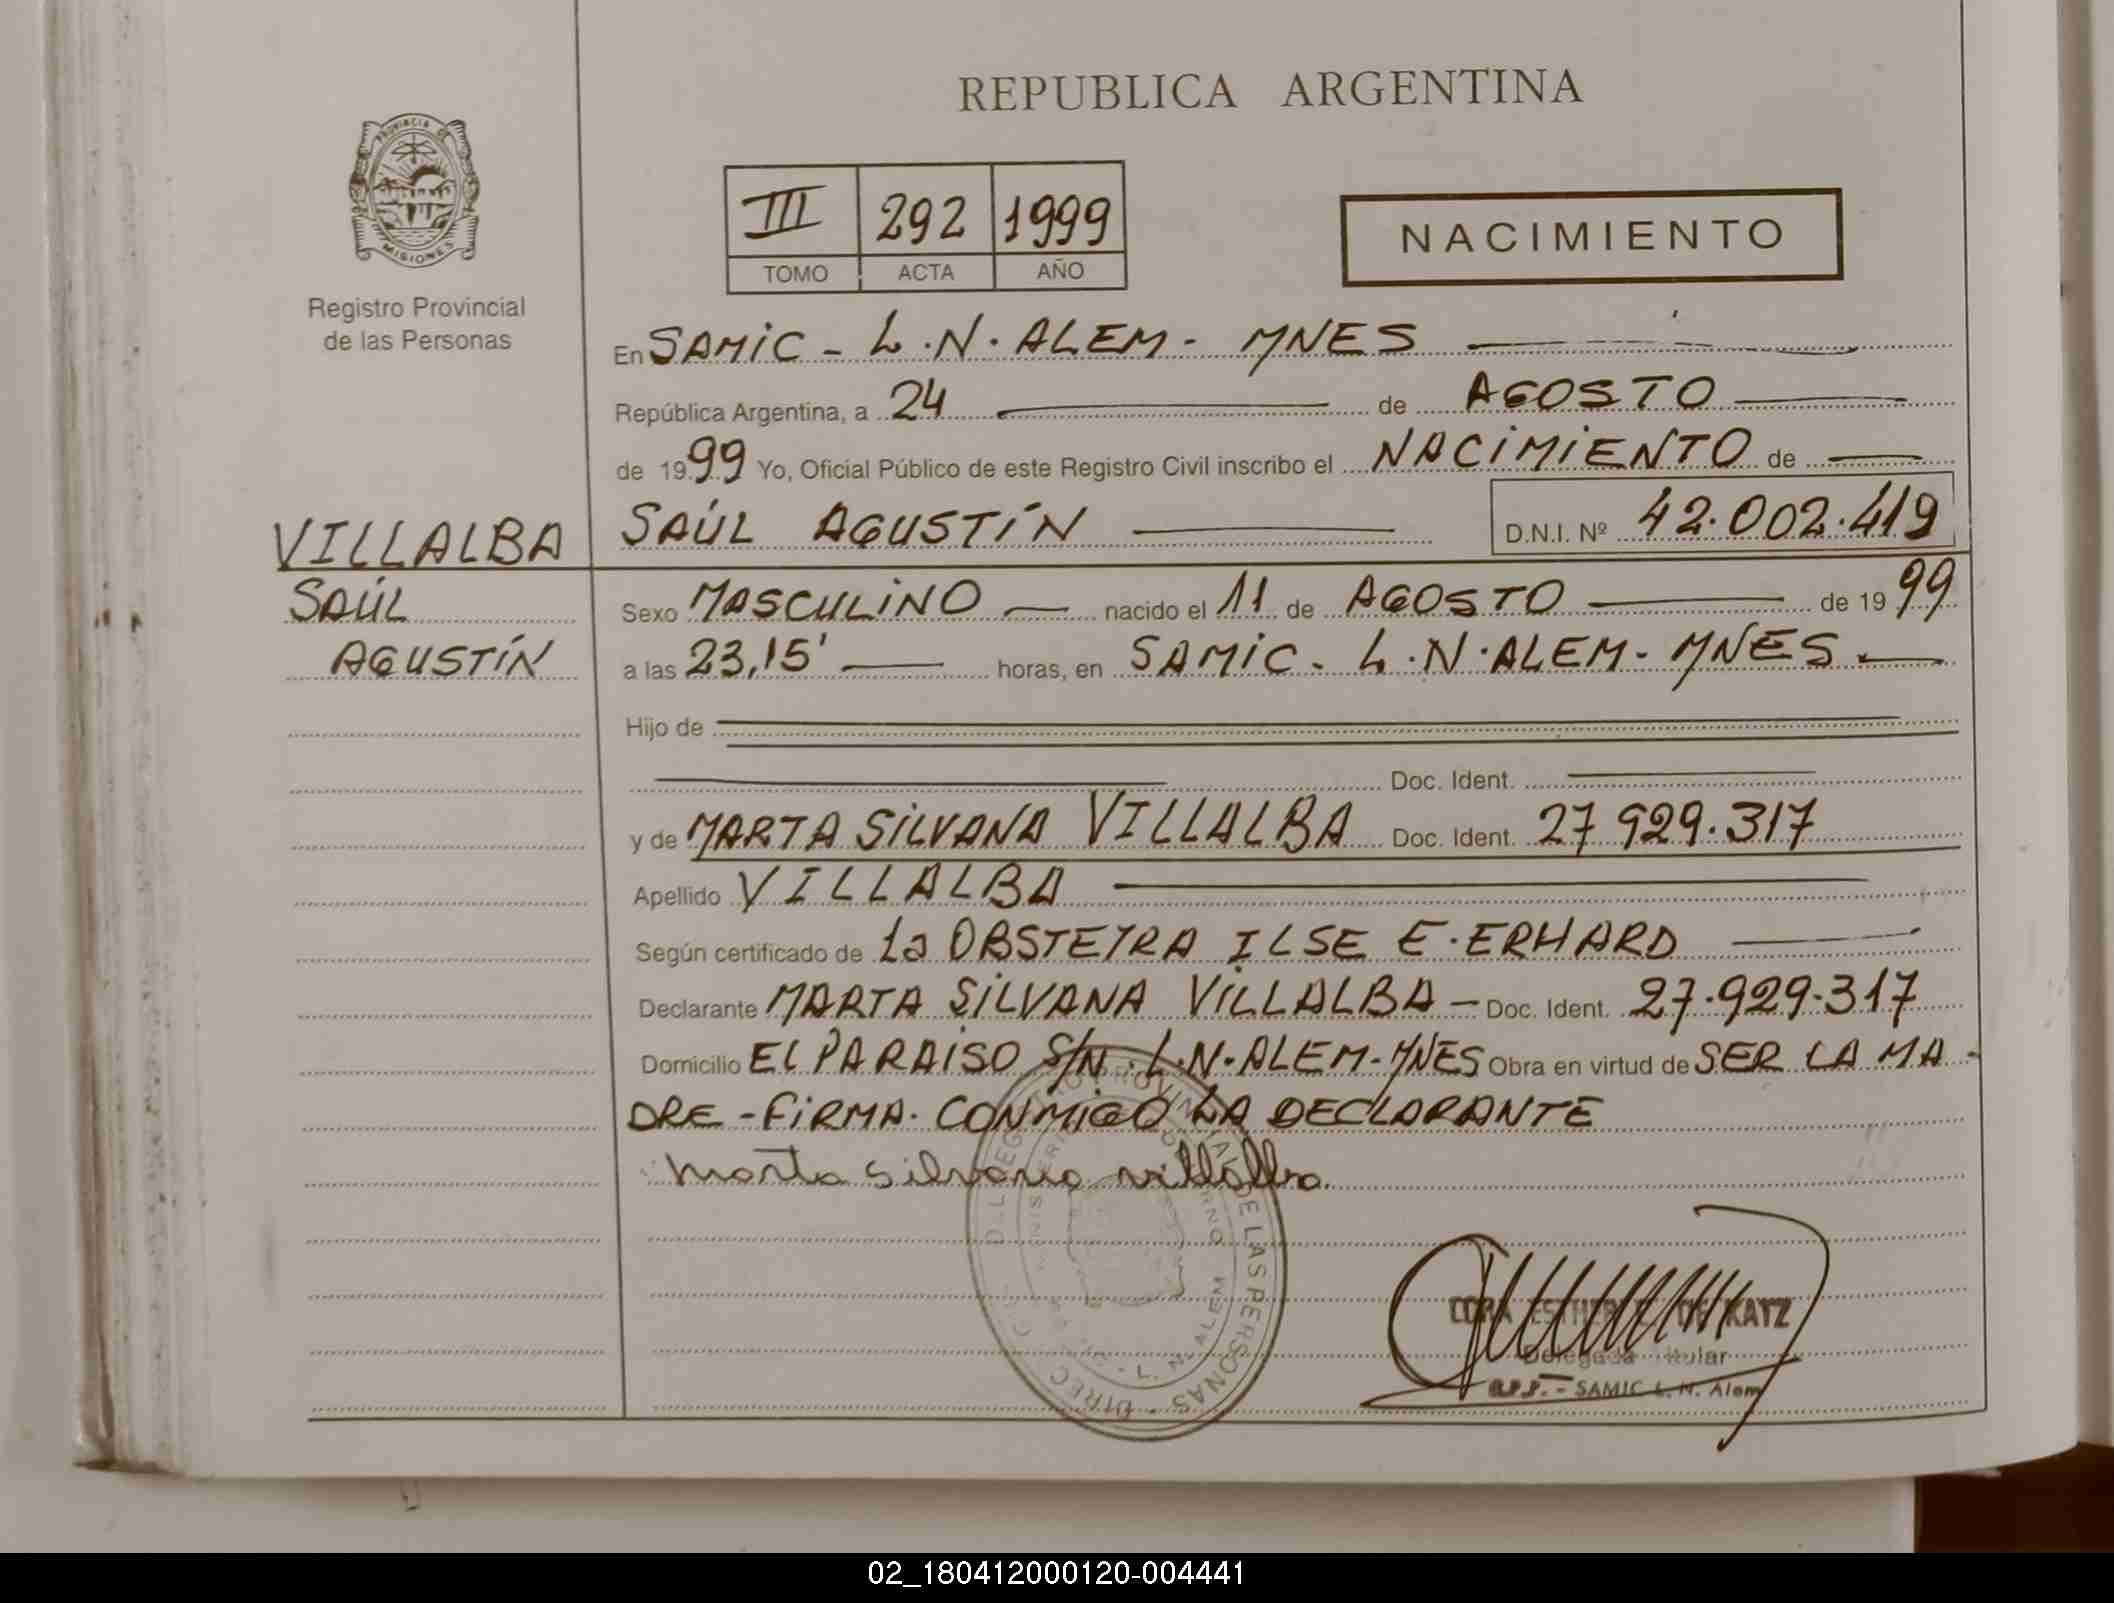 REPUBLICA ARGENTINA
PROVINCIA DE
MISIONES
Registro Provincial
de las Personas
III 292 1999
TOMO ACTA AÑO
NACIMIENTO
En SAMIC - L.N. ALEM - MNES
República Argentina, a 24 de AGOSTO
de 1999 Yo, Oficial Público de este Registro Civil inscribo el NACIMIENTO de
SAÚL AGUSTÍN D.N.I. Nº 42.002.419
VILLALBA
SAÚL
AGUSTÍN
Sexo MASCULINO nacido el 11 de AGOSTO de 1999
a las 23,15' horas, en SAMIC - L.N. ALEM - MNES.
Hijo de
Doc. Ident.
y de MARTA SILVANA VILLALBA Doc. Ident. 27.929.317
Apellido VILLALBA
Según certificado de La OBSTETRA ILSE E. ERHARD
Declarante MARTA SILVANA VILLALBA - Doc. Ident. 27.929.317
Domicilio EL PARAISO S/N. L.N. ALEM - MNES Obra en virtud de SER LA MA-
DRE - FIRMA CONMIGO LA DECLARANTE
Marta Silvana villalba.
DE LAS PERSONAS
L. N. ALEM
ESTHER DE KATZ
Delegada Titular
SAMIC L. N. Alem
02_180412000120-004441